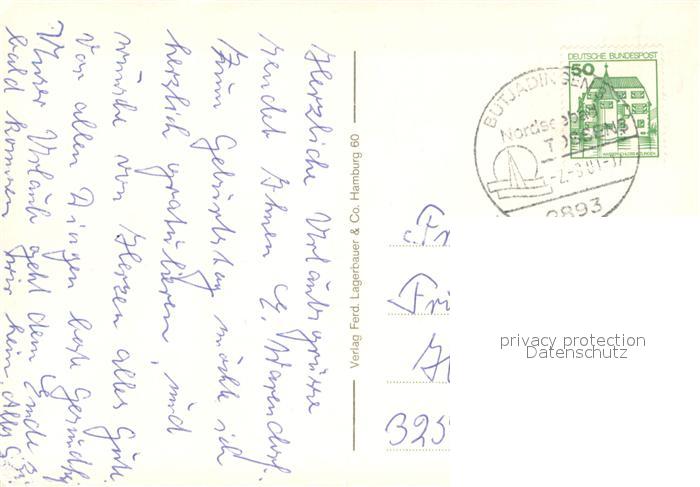 Herzliche Urlaubsgrüsse
sendet Ihnen E. Warendorf.
Zum Geburtstag möchte ich
herzlich gratulieren, und
wünsche von Herzen alles Gute.
Vor allen Dingen beste Gesundh
Unser Urlaub geht dem Ende
bald kommen wir heim. Alles
Verlag Ferd. Lagerbauer & Co. Hamburg 60
DEUTSCHE BUNDESPOST
50
BUTJADINGEN
Nordseebad
TOSSENS
2893
Fr
Fri
325
privacy protection
Datenschutz